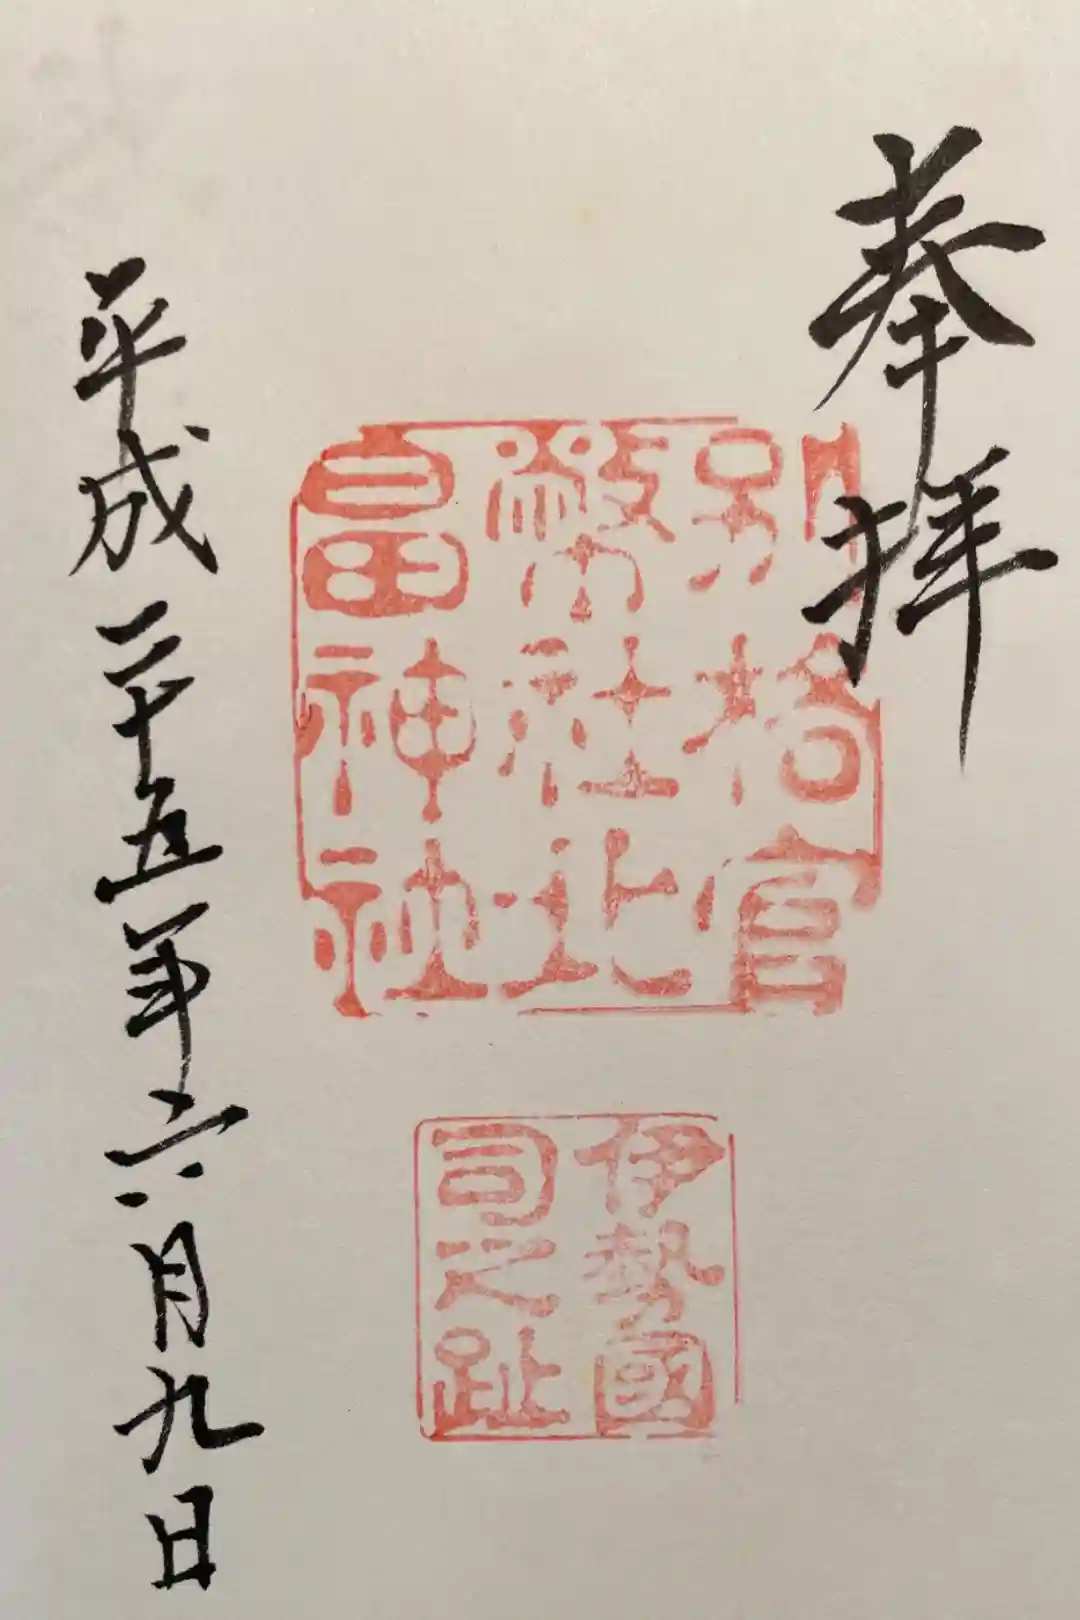 奉拝
別格官
幣社北
畠神社
伊勢國
司之趾
平成二十五年六月九日